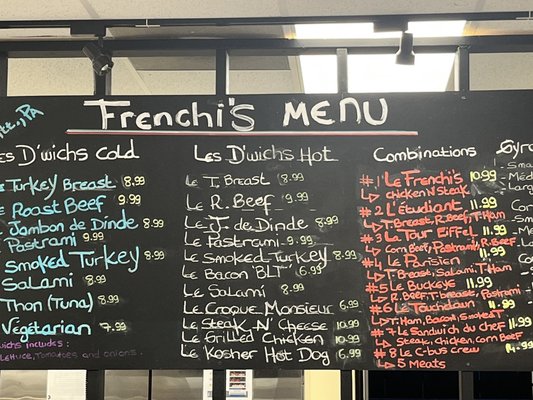 Frenchi's MENU
PA
es D'wichs cold
Turkey Breast 8.99
Roast Beef 9.99
Jambon de Dinde 8.99
Pastrami 9.99
Smoked Turkey 8.99
Salami 8.99
Thon (Tuna) 8.99
Végétarian 7.99
wichs includes:
Lettuce, Tomatoes and onions.
Les D'wichs Hot
Le T. Breast 8.99
Le R. Beef 9.99
Le J. de Dinde 8.99
Le Pastrami 9.99
Le Smoked Turkey 8.99
Le Bacon "BLT" 6.99
Le Salami 8.99
Le Croque Monsieur 6.99
Le Steak N' Cheese 10.99
Le Grilled Chicken 10.99
Le Kosher Hot Dog 6.99
Combinations
#1 Le Frenchi's 10.99
Chicken N Steak
#2 L'étudiant 11.99
T.Breast, R.Beef, T.Ham
#3 La Tour Eiffel 11.99
Corn Beef, Pastrami, R.Beef
#4 Le Parisien 11.99
T.Breast, Salami, T.Ham
#5 Le Buckeye 11.99
R.Beef, T.breast, Pastrami
#6 Le Touchdown 11.99
T.Ham, Bacon, Smoked T
#7 Le Sandwich du chef 11.99
Steak, chicken, Corn Beef
#8 Le C-bus crew
5 Meats
Gyro